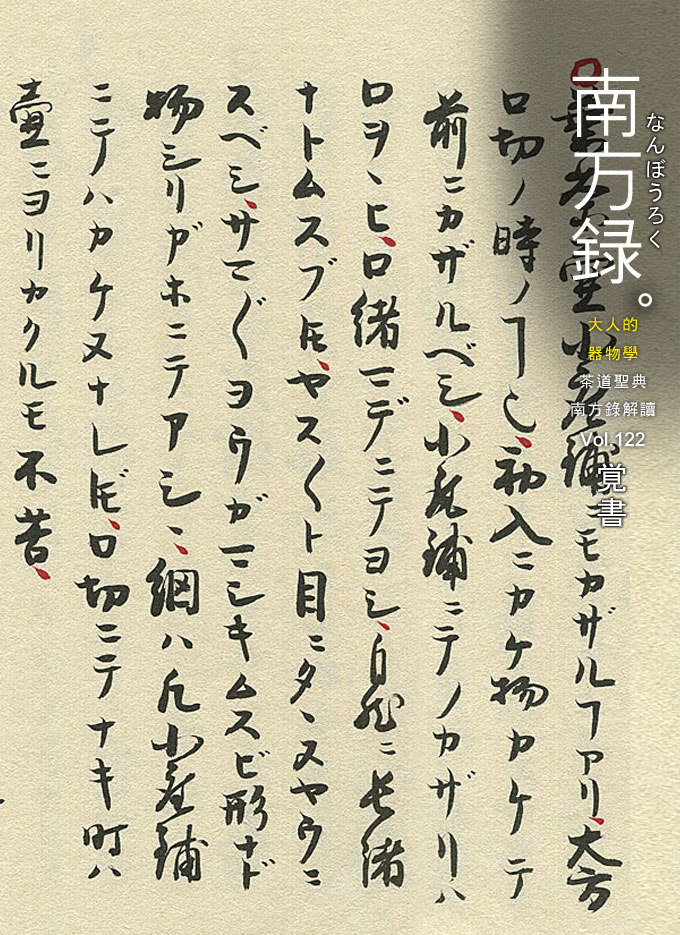 南方録。
なんぼうろく
大人的
器物學
茶道聖典
南方錄解讀
Vol.122
覚書
〇葉茶壺小座鋪ニモカザルヿアリ、大方
口切ノ時ノヿ也、初入ニカケ物カケテ
前ニカザルベシ、小座鋪ニテノカザリハ
口ヲヽヒ、口緒マデニテヨシ、自然ニ長緒
ナトムスブ𪜈、ヤス〱ト目ニタヽヌヤウニ
スベシ、サマ〲ヨウガマシキムスビ形ナド
物シリガホニテアシヽ、網ハ凡小座鋪
ニテハカケヌナレ𪜈、口切ニテナキ時ハ
壺ニヨリカクルモ不苦、